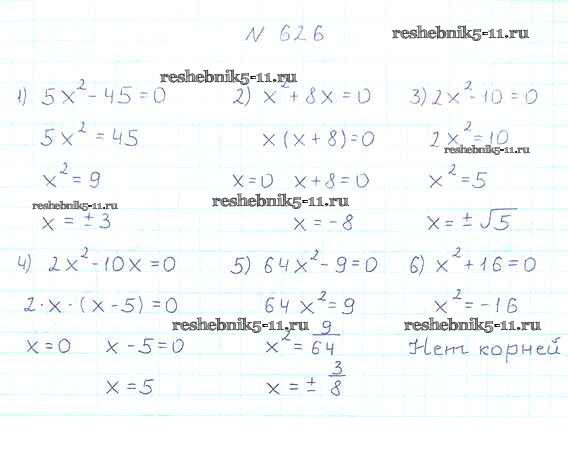 N 626
reshebnik5-11.ru
reshebnik5-11.ru
1) 5x² - 45 = 0
5x² = 45
x² = 9
reshebnik5-11.ru
x = ± 3
2) x² + 8x = 0
x (x + 8) = 0
x = 0 x + 8 = 0
reshebnik5-11.ru
x = -8
3) 2x² - 10 = 0
2x² = 10
reshebnik5-11.ru
x² = 5
x = ± √5
4) 2x² - 10x = 0
2 · x · (x - 5) = 0
x = 0 x - 5 = 0
x = 5
5) 64x² - 9 = 0
64x² = 9
reshebnik5-11.ru
x² = 9/64
x = ± 3/8
6) x² + 16 = 0
x² = -16
reshebnik5-11.ru
Нет корней